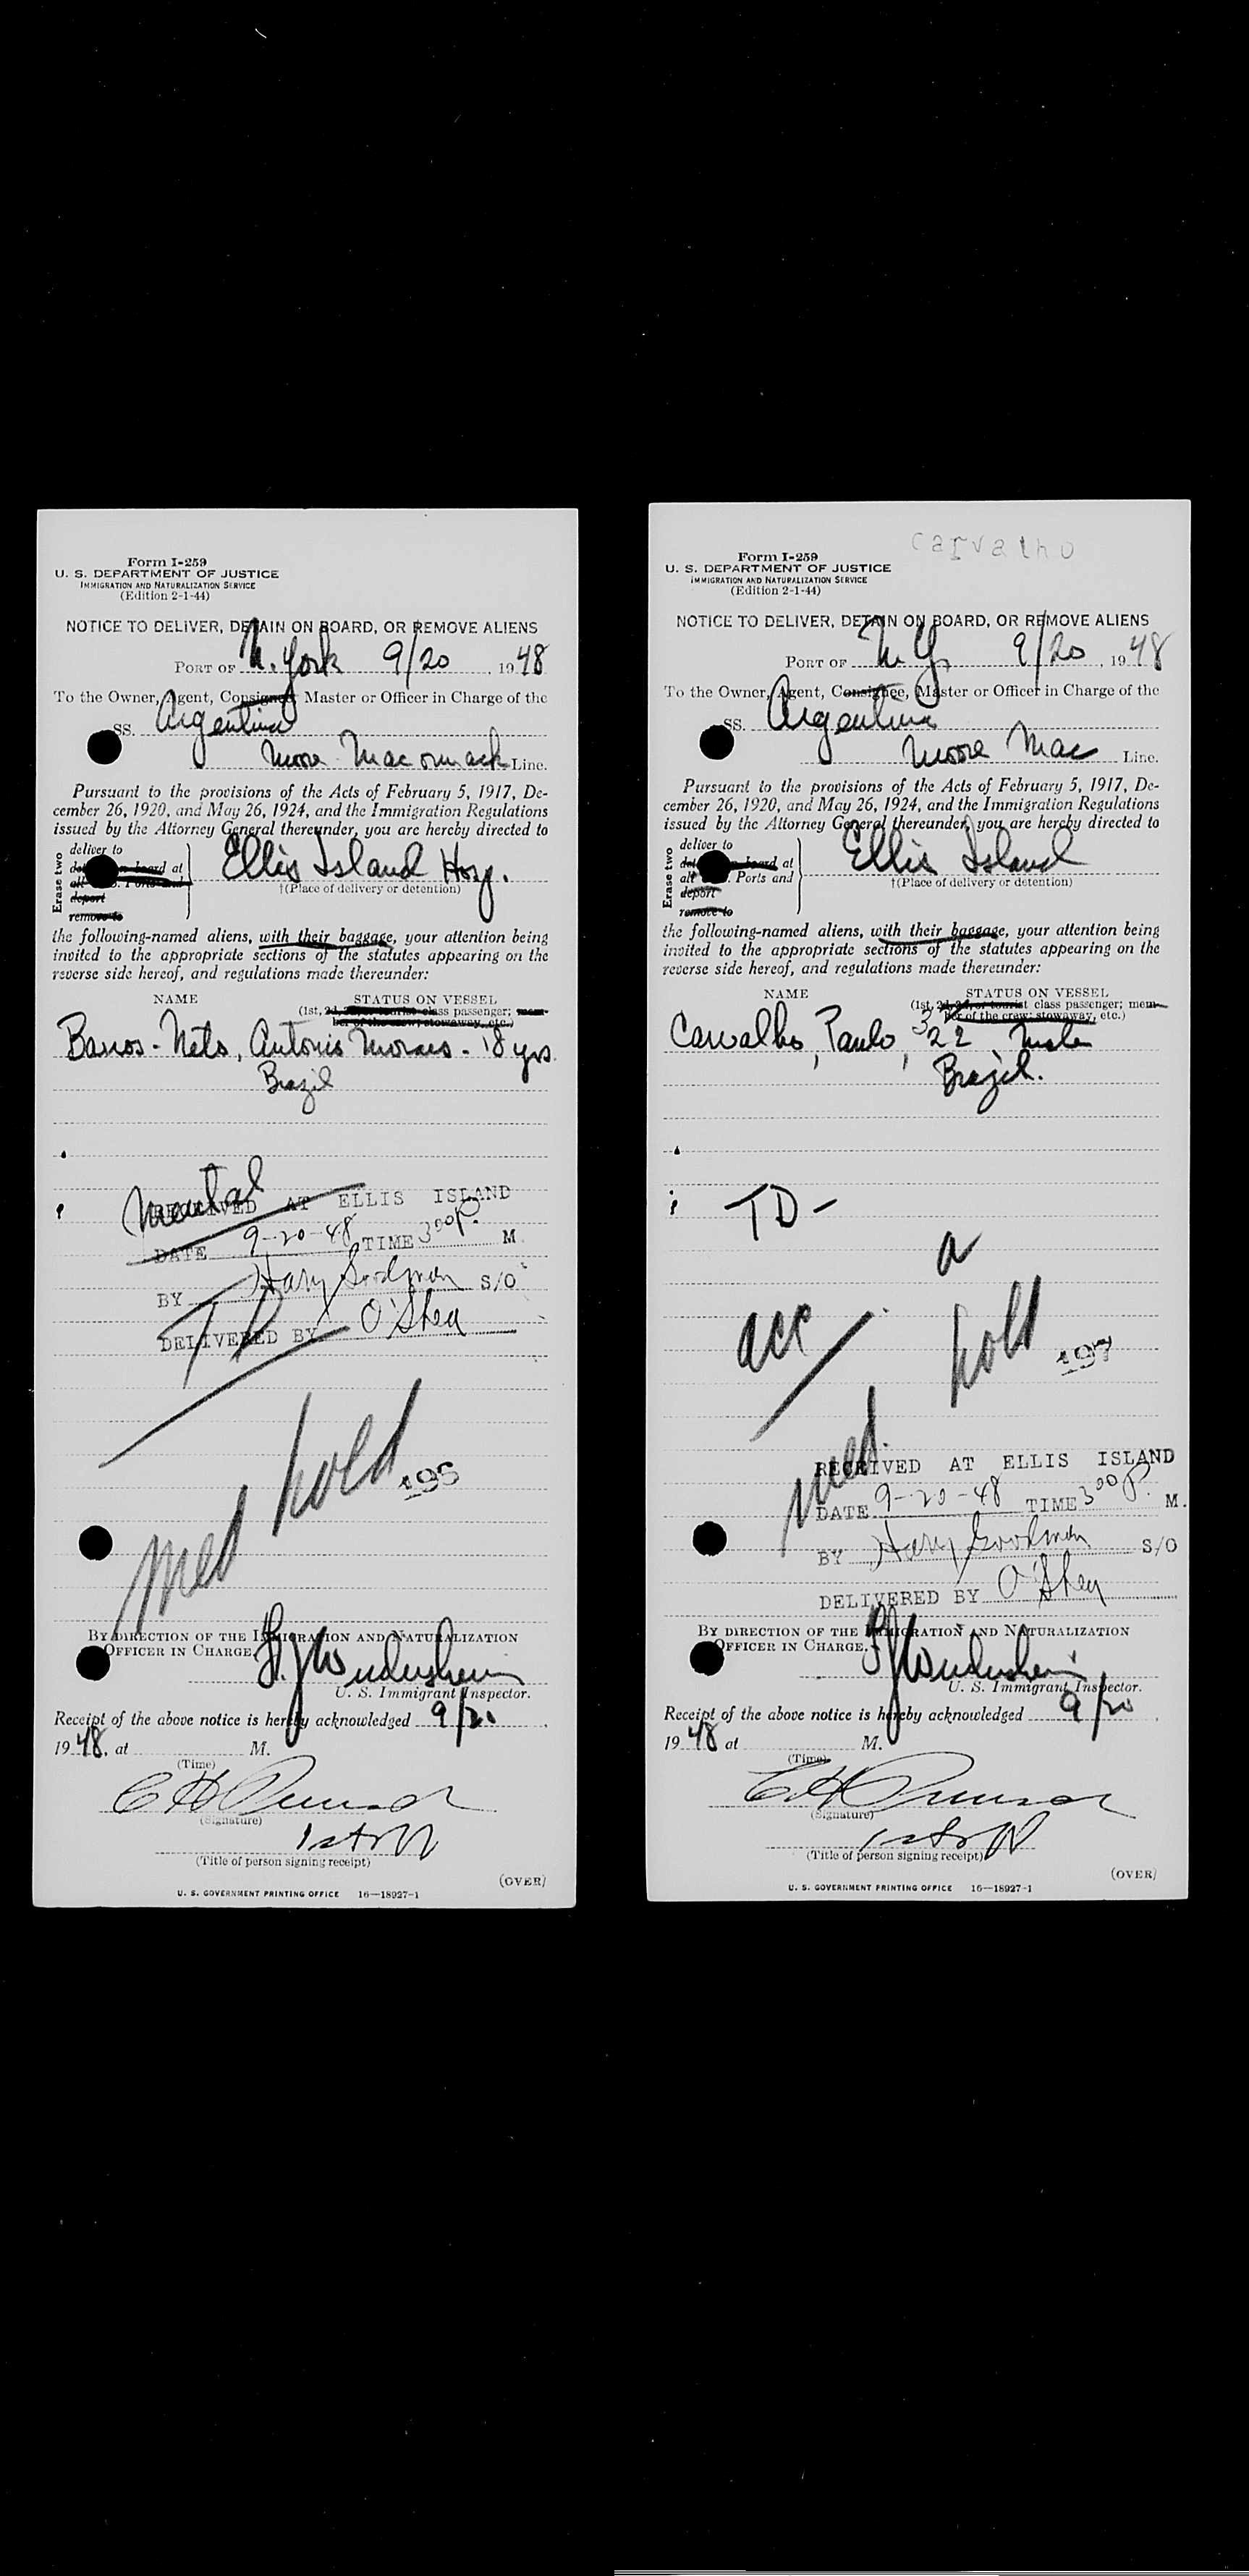 Form I-259
U. S. DEPARTMENT OF JUSTICE
IMMIGRATION AND NATURALIZATION SERVICE
(Edition 2-1-44)
NOTICE TO DELIVER, DETAIN ON BOARD, OR REMOVE ALIENS
PORT OF N. York 9/20, 1948
To the Owner, Agent, Consignee, Master or Officer in Charge of the
SS. Argentina
Moore Macormack Line.
Pursuant to the provisions of the Acts of February 5, 1917, De-
cember 26, 1920, and May 26, 1924, and the Immigration Regulations
issued by the Attorney General thereunder, you are hereby directed to
Erase two
deliver to
board at
Ports and
deport
remove to
Ellis Island Hosp.
†(Place of delivery or detention)
the following-named aliens, with their baggage, your attention being
invited to the appropriate sections of the statutes appearing on the
reverse side hereof, and regulations made thereunder:
NAME STATUS ON VESSEL
(1st, 2d, or tourist class passenger; mem-
ber of the crew; stowaway, etc.)
Barros-Neto, Antonio Moraes - 18 yrs.
Brazil
Mental
RECEIVED AT ELLIS ISLAND
DATE 9-20-48 TIME 3 00 P. M
BY Harry Goodman S/O
TD
DELIVERED BY O'Shea
Med hold
BY DIRECTION OF THE IMMIGRATION AND NATURALIZATION
OFFICER IN CHARGE.
U. S. Immigrant Inspector.
Receipt of the above notice is hereby acknowledged 9/20,
1948, at M.
(Time)
(Signature)
(Title of person signing receipt)
(OVER)
U. S. GOVERNMENT PRINTING OFFICE 16—18927-1
Carvalho
Form I-259
U. S. DEPARTMENT OF JUSTICE
IMMIGRATION AND NATURALIZATION SERVICE
(Edition 2-1-44)
NOTICE TO DELIVER, DETAIN ON BOARD, OR REMOVE ALIENS
PORT OF N.Y. 9/20, 1948
To the Owner, Agent, Consignee, Master or Officer in Charge of the
SS. Argentina
Moore Mac Line.
Pursuant to the provisions of the Acts of February 5, 1917, De-
cember 26, 1920, and May 26, 1924, and the Immigration Regulations
issued by the Attorney General thereunder, you are hereby directed to
Erase two
deliver to
board at
Ports and
deport
remove to
Ellis Island
†(Place of delivery or detention)
the following-named aliens, with their baggage, your attention being
invited to the appropriate sections of the statutes appearing on the
reverse side hereof, and regulations made thereunder:
NAME STATUS ON VESSEL
(1st, 2d, or tourist class passenger; mem-
ber of the crew; stowaway, etc.)
Carvalho, Paulo, 22 Male
Brazil.
TD -
a
acc
hold
197
med.
RECEIVED AT ELLIS ISLAND
DATE 9-20-48 TIME 3 00 P. M.
BY Harry Goodman S/O
DELIVERED BY O'Shea
BY DIRECTION OF THE IMMIGRATION AND NATURALIZATION
OFFICER IN CHARGE.
U. S. Immigrant Inspector.
Receipt of the above notice is hereby acknowledged 9/20,
1948 at M.
(Time)
(Signature)
(Title of person signing receipt)
(OVER)
U. S. GOVERNMENT PRINTING OFFICE 16—18927-1